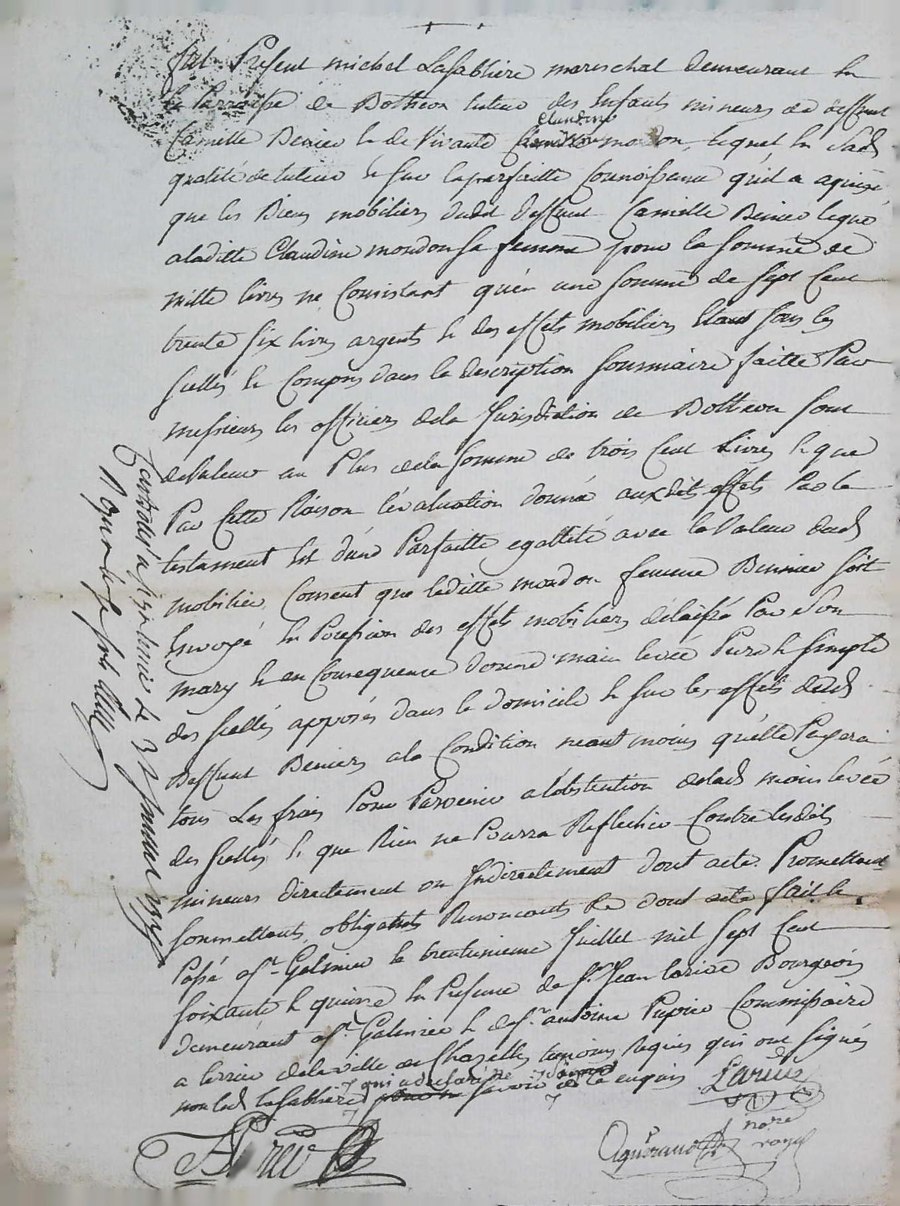 fut Présent michel Lasablière mareschal demeurant en
la Parroisse de Botheon tuteur des Enfants mineurs de deffunt
Claudine
Camille Benier & de Vivante mondon, lequel en lad
qualité de tuteur & sur la parfaitte Connoissance qu'il a aquise
que les Biens mobiliers dudit deffunt Camille Benier legué
aladitte Claudine mondon sa femme pour la somme de
mille livres ne Consistant qu'en une somme de Sept Cent
trente six livres argent & des effets mobiliers Etant sous les
scellés & Compris dans la description sommaire faitte Par
messieurs les officiers dela Jurisdiction de Botheon sont
devaleur au Plus dela somme de trois Cent Livres & que
Par Cette Raison l'évaluation donnée auxdits effets Par le
testament est d'une Parfaitte egallité avec la Valeur dud
mobilier, Consent que laditte mondon femme Bennier soit
Envoyé en Possesion des effets mobiliers délaissé Par son
mary & en Consequence donne main levée Pure & simple
des scellés apposés dans le domicile & sur les effets dudt
Deffunt Benier ala Condition neantmoins qu'elle Payera
tous Les frais Pour Parvenir a l'obstention delad main levée
des scellés & que Rien ne Pourra Reflechir Contre lesdits
mineurs directement ou Indirectement dont acte Promettant
sommettants, obligeants Renoncants &c dont acte fait &
Passé a St. Galmier le trentunieme Juillet mil sept Cent
soixante & quinze en Presence de Sr. Jean Larive Bourgeois
demeurant a St. Galmier & de Sr. antoine Commissaire
a terrier dela ville de Chazelles temoins Requis qui ont signés
non led Lasablière qui a declaré ne savoir de ce enquis
Larive
nore
royal